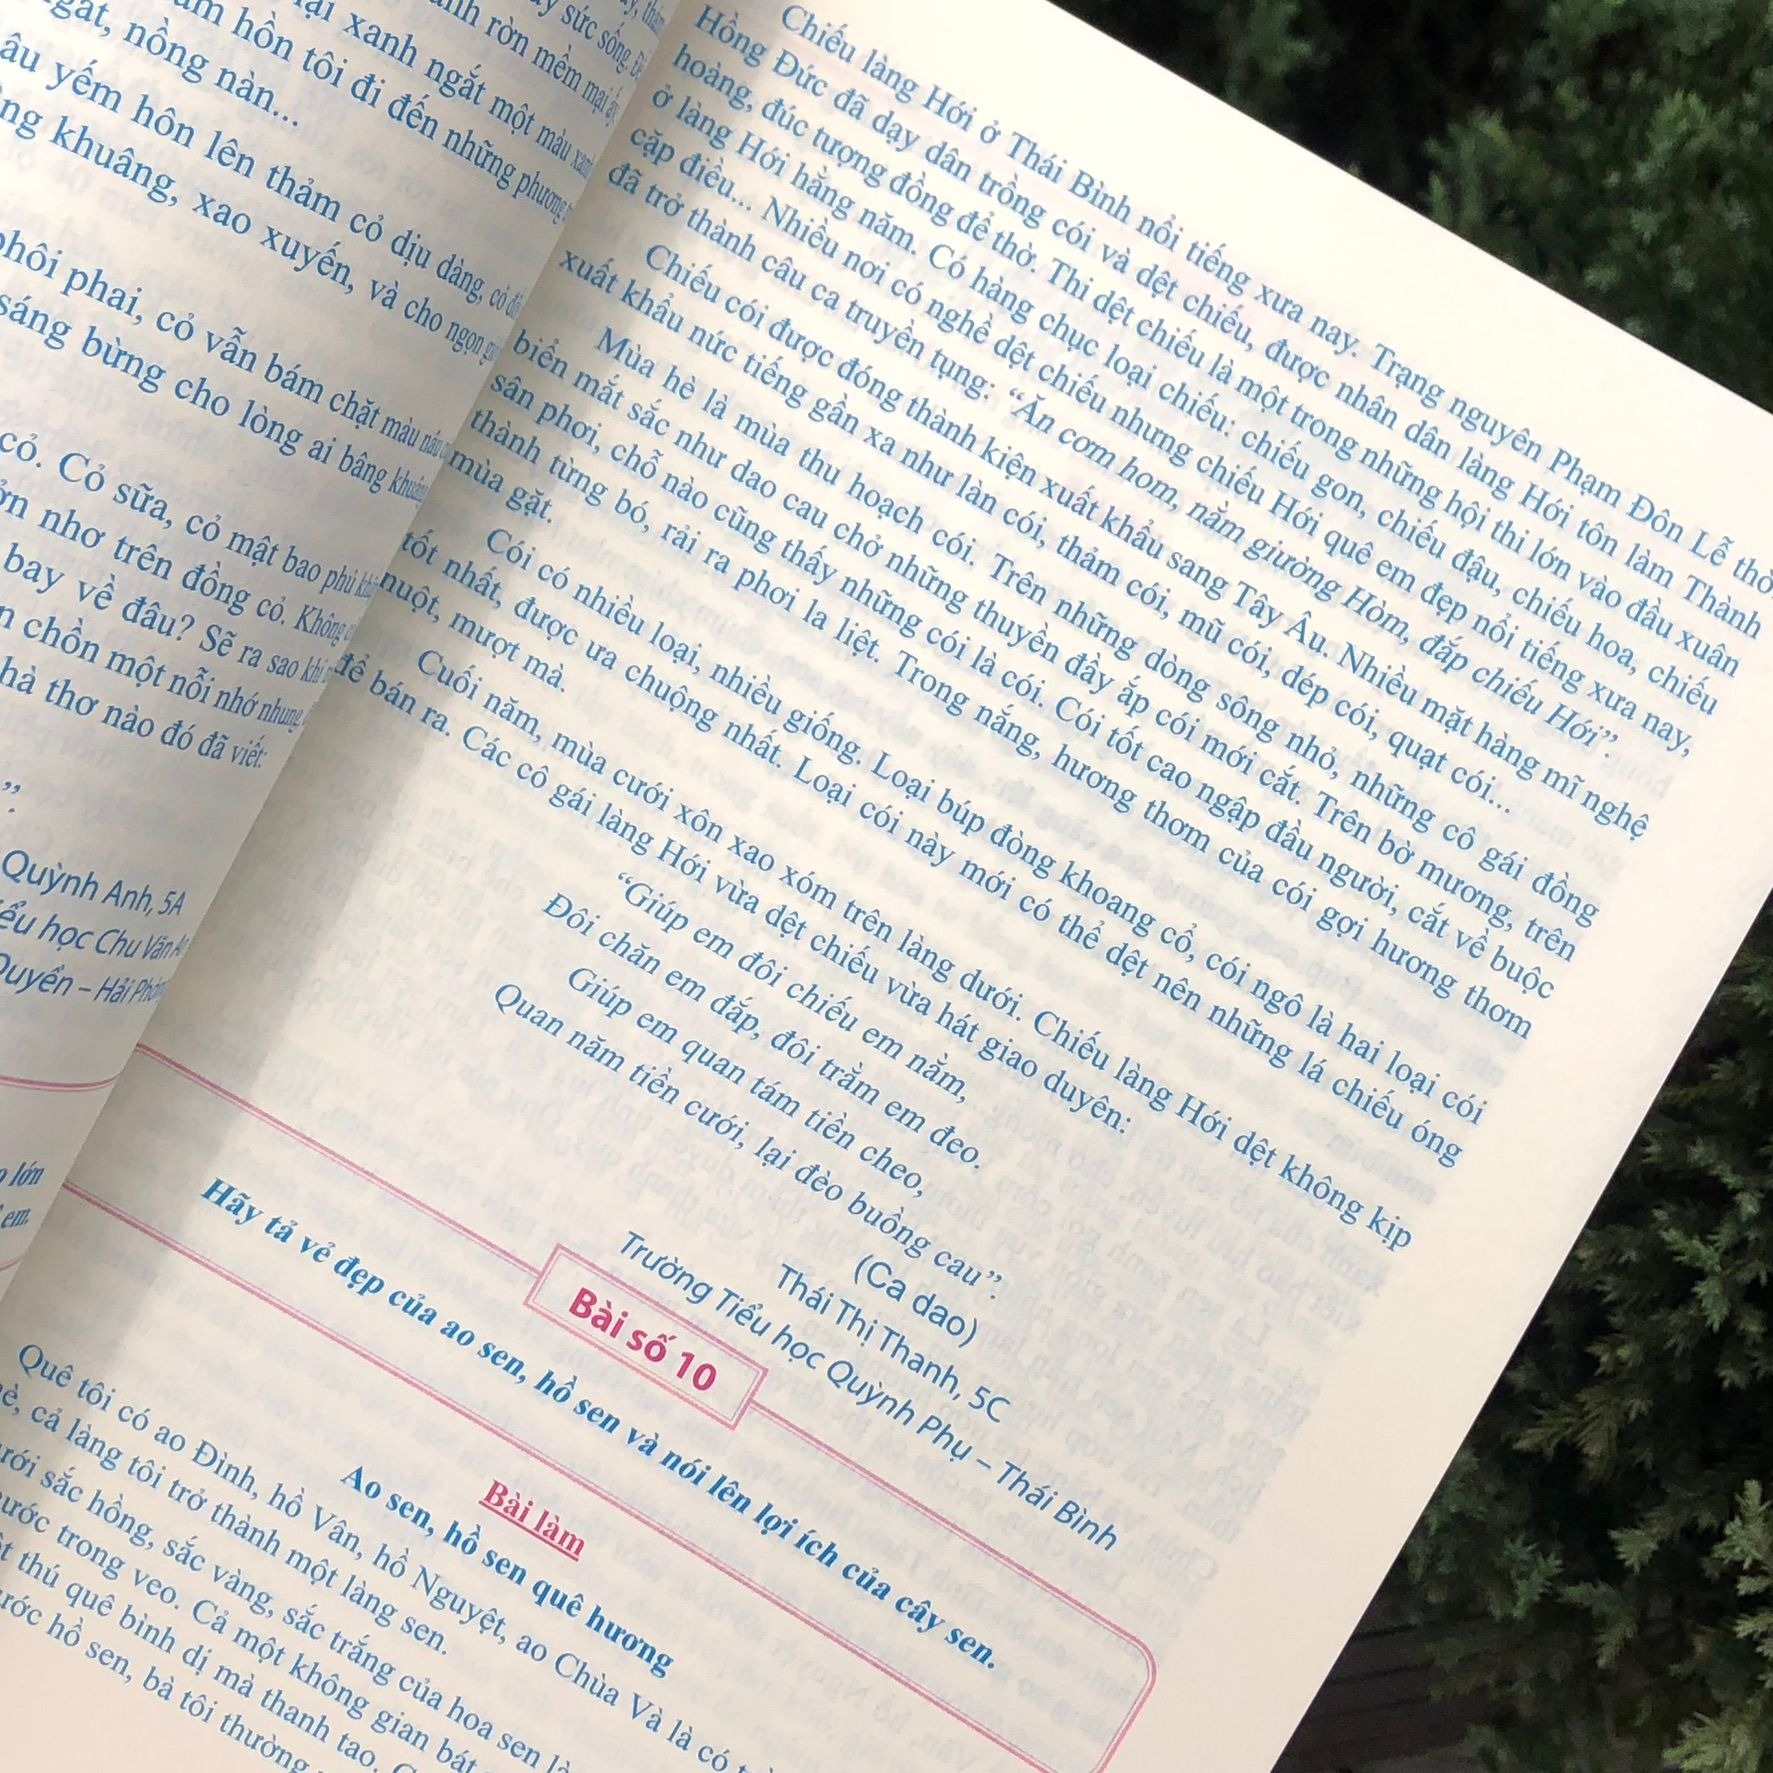 ngát, nồng nàn...
âm hồn tôi đi đến những phương
âu yếm hôn lên thảm cỏ dịu dàng, cỏ
khuâng, xao xuyến, và cho ngọn
phôi phai, cỏ vẫn bám chặt màu
sáng bừng cho lòng ai bâng khuâng
cỏ. Cỏ sữa, cỏ mật bao phủ
nhơ trên đồng cỏ. Không
bay về đâu? Sẽ ra sao khi
chồn một nỗi nhớ nhung
hà thơ nào đó đã viết:
”.
Quỳnh Anh, 5A
ểu học Chu Văn An
Duyền – Hải Phòng
lớn
em.
Chiếu làng Hới ở Thái Bình nổi tiếng xưa nay. Trạng nguyên Phạm Đôn Lễ thờ
Hồng Đức đã dạy dân trồng cói và dệt chiếu, được nhân dân làng Hới tôn làm Thành
hoàng, đúc tượng đồng để thờ. Thi dệt chiếu là một trong những hội thi lớn vào đầu xuân
ở làng Hới hằng năm. Có hàng chục loại chiếu: chiếu gon, chiếu đậu, chiếu hoa, chiếu
cặp điều... Nhiều nơi có nghề dệt chiếu nhưng chiếu Hới quê em đẹp nổi tiếng xưa nay,
đã trở thành câu ca truyền tụng: “Ăn cơm hom, nằm giường Hòm, đắp chiếu Hới”.
Chiếu cói được đóng thành kiện xuất khẩu sang Tây Âu. Nhiều mặt hàng mĩ nghệ
xuất khẩu nức tiếng gần xa như làn cói, thảm cói, mũ cói, dép cói, quạt cói...
Mùa hè là mùa thu hoạch cói. Trên những dòng sông nhỏ, những cô gái đồng
biển mắt sắc như dao cau chở những thuyền đầy ắp cói mới cắt. Trên bờ mương, trên
sân phơi, chỗ nào cũng thấy những cói là cói. Cói tốt cao ngập đầu người, cắt về buộc
thành từng bó, rải ra phơi la liệt. Trong nắng, hương thơm của cói gợi hương thơm
mùa gặt.
Cói có nhiều loại, nhiều giống. Loại búp đòng khoang cổ, cói ngô là hai loại cói
tốt nhất, được ưa chuộng nhất. Loại cói này mới có thể dệt nên những lá chiếu óng
nuột, mượt mà.
Cuối năm, mùa cưới xôn xao xóm trên làng dưới. Chiếu làng Hới dệt không kịp
để bán ra. Các cô gái làng Hới vừa dệt chiếu vừa hát giao duyên:
“Giúp em đôi chiếu em nằm,
Đôi chăn em đắp, đôi trằm em đeo.
Giúp em quan tám tiền cheo,
Quan năm tiền cưới, lại đèo buồng cau”.
(Ca dao)
Thái Thị Thanh, 5C
Trường Tiểu học Quỳnh Phụ – Thái Bình
Bài số 10
Hãy tả vẻ đẹp của ao sen, hồ sen và nói lên lợi ích của cây sen.
Bài làm
Ao sen, hồ sen quê hương
Quê tôi có ao Đình, hồ Vân, hồ Nguyệt, ao Chùa Và là có
hè, cả làng tôi trở thành một làng sen.
sắc hồng, sắc vàng, sắc trắng của hoa sen
nước trong veo. Cả một không gian bát
thú quê bình dị mà thanh tao.
hồ sen, bà tôi thường